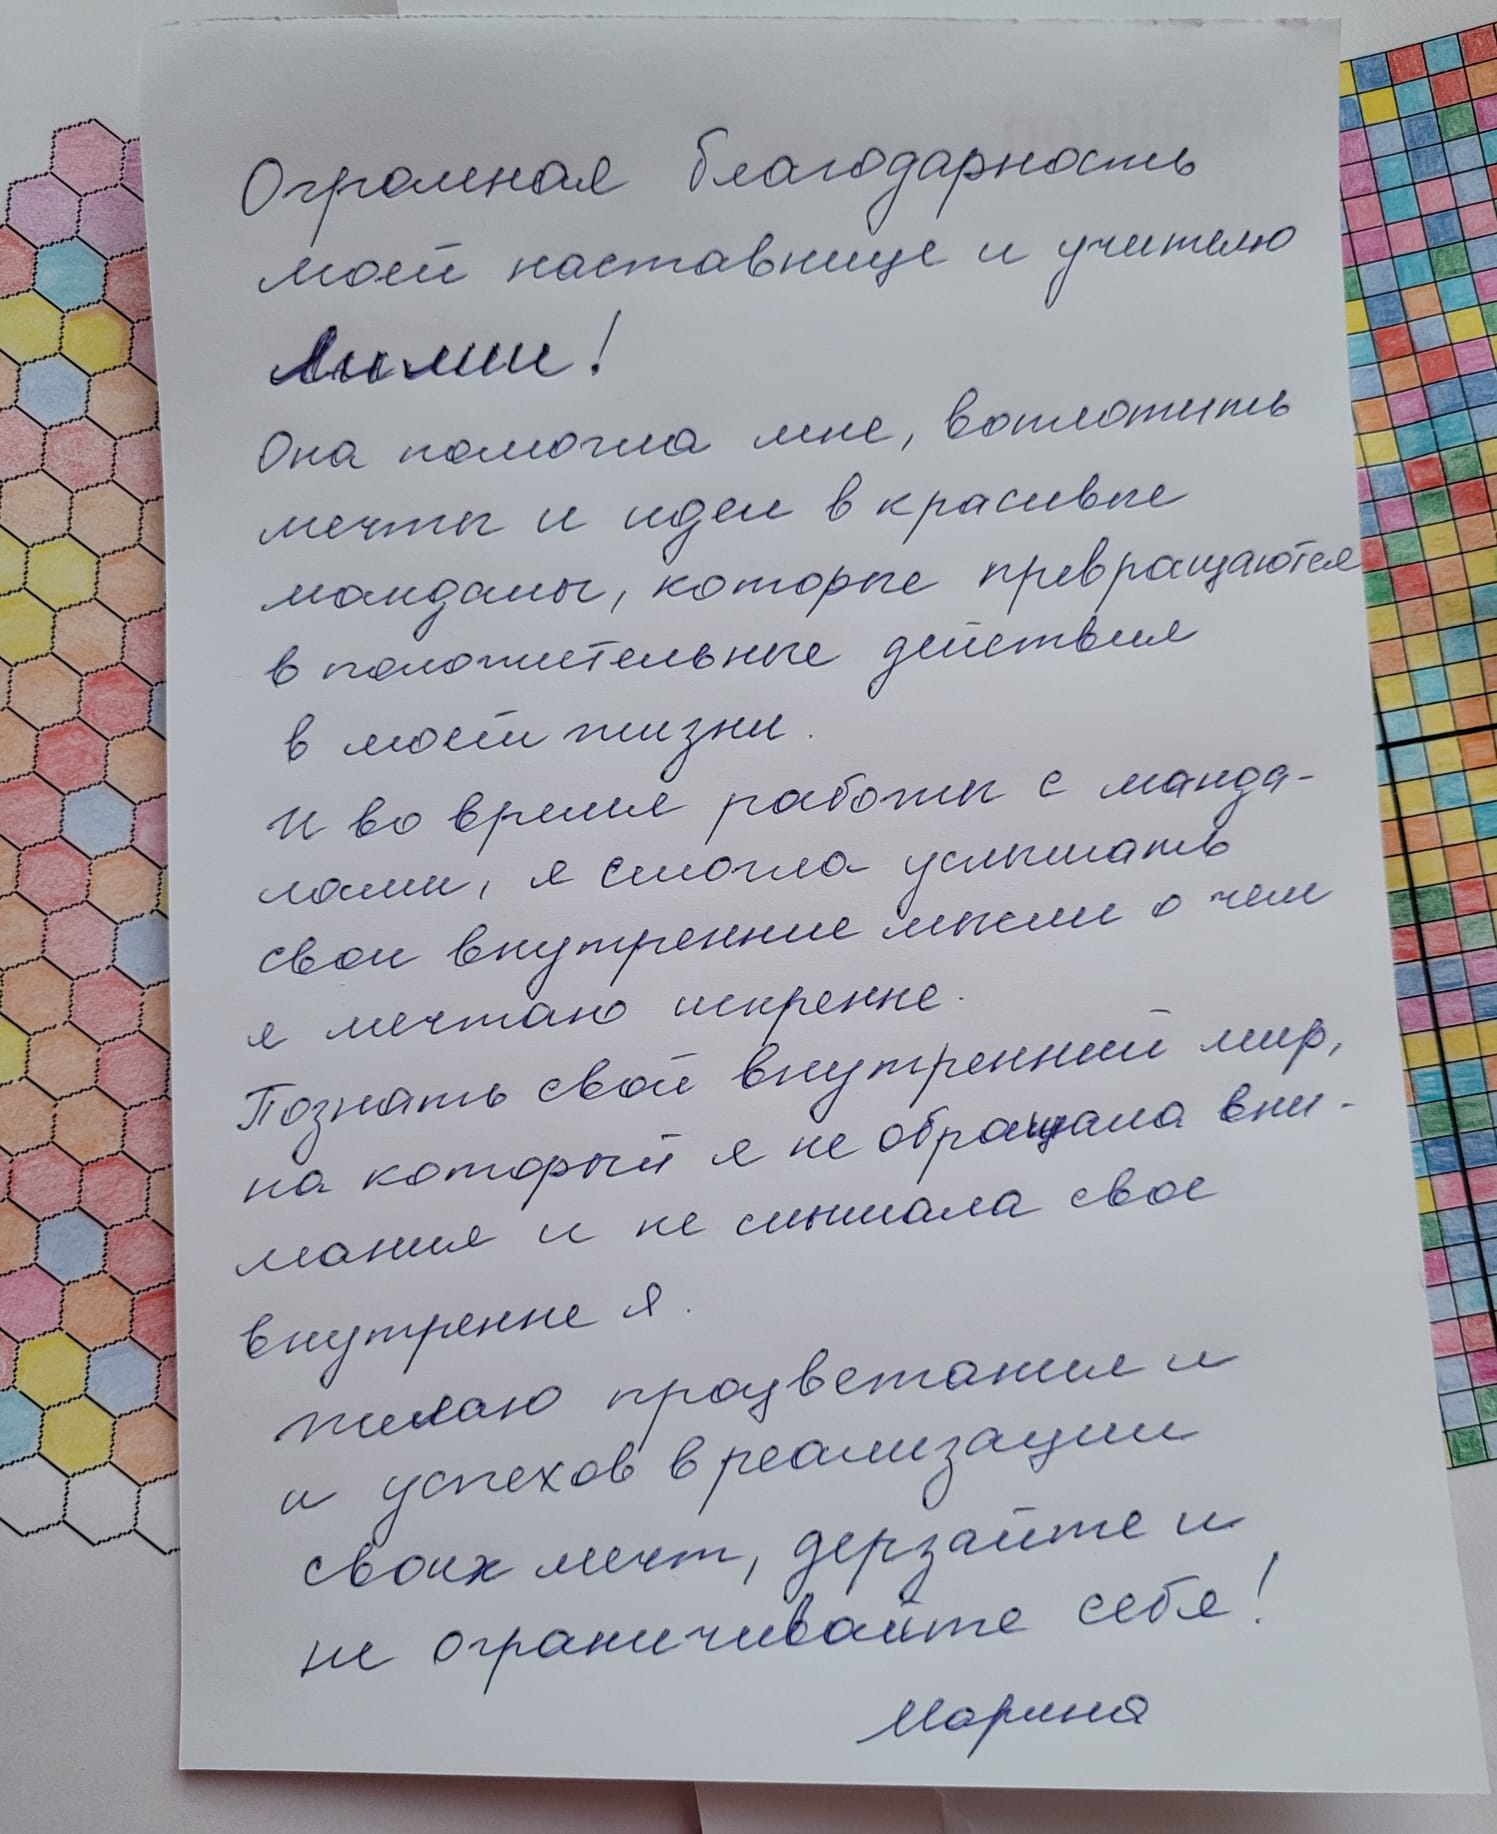 Огромная благодарность
моей наставнице и учителю
Она помогла мне, воплотить
мечты и идеи в красивые
мандалы, которые превращаются
в положительные действия
в моей жизни.
И во время работы с манда-
лами, я смогла услышать
свои внутренние мысли о чем
я мечтаю искренне.
Познать свой внутренний мир,
на который я не обращала вни-
мания и не слышала свое
внутренне Я.
Желаю процветания и
и успехов в реализации
своих мечт, дерзайте и
не ограничивайте себя!
Марина